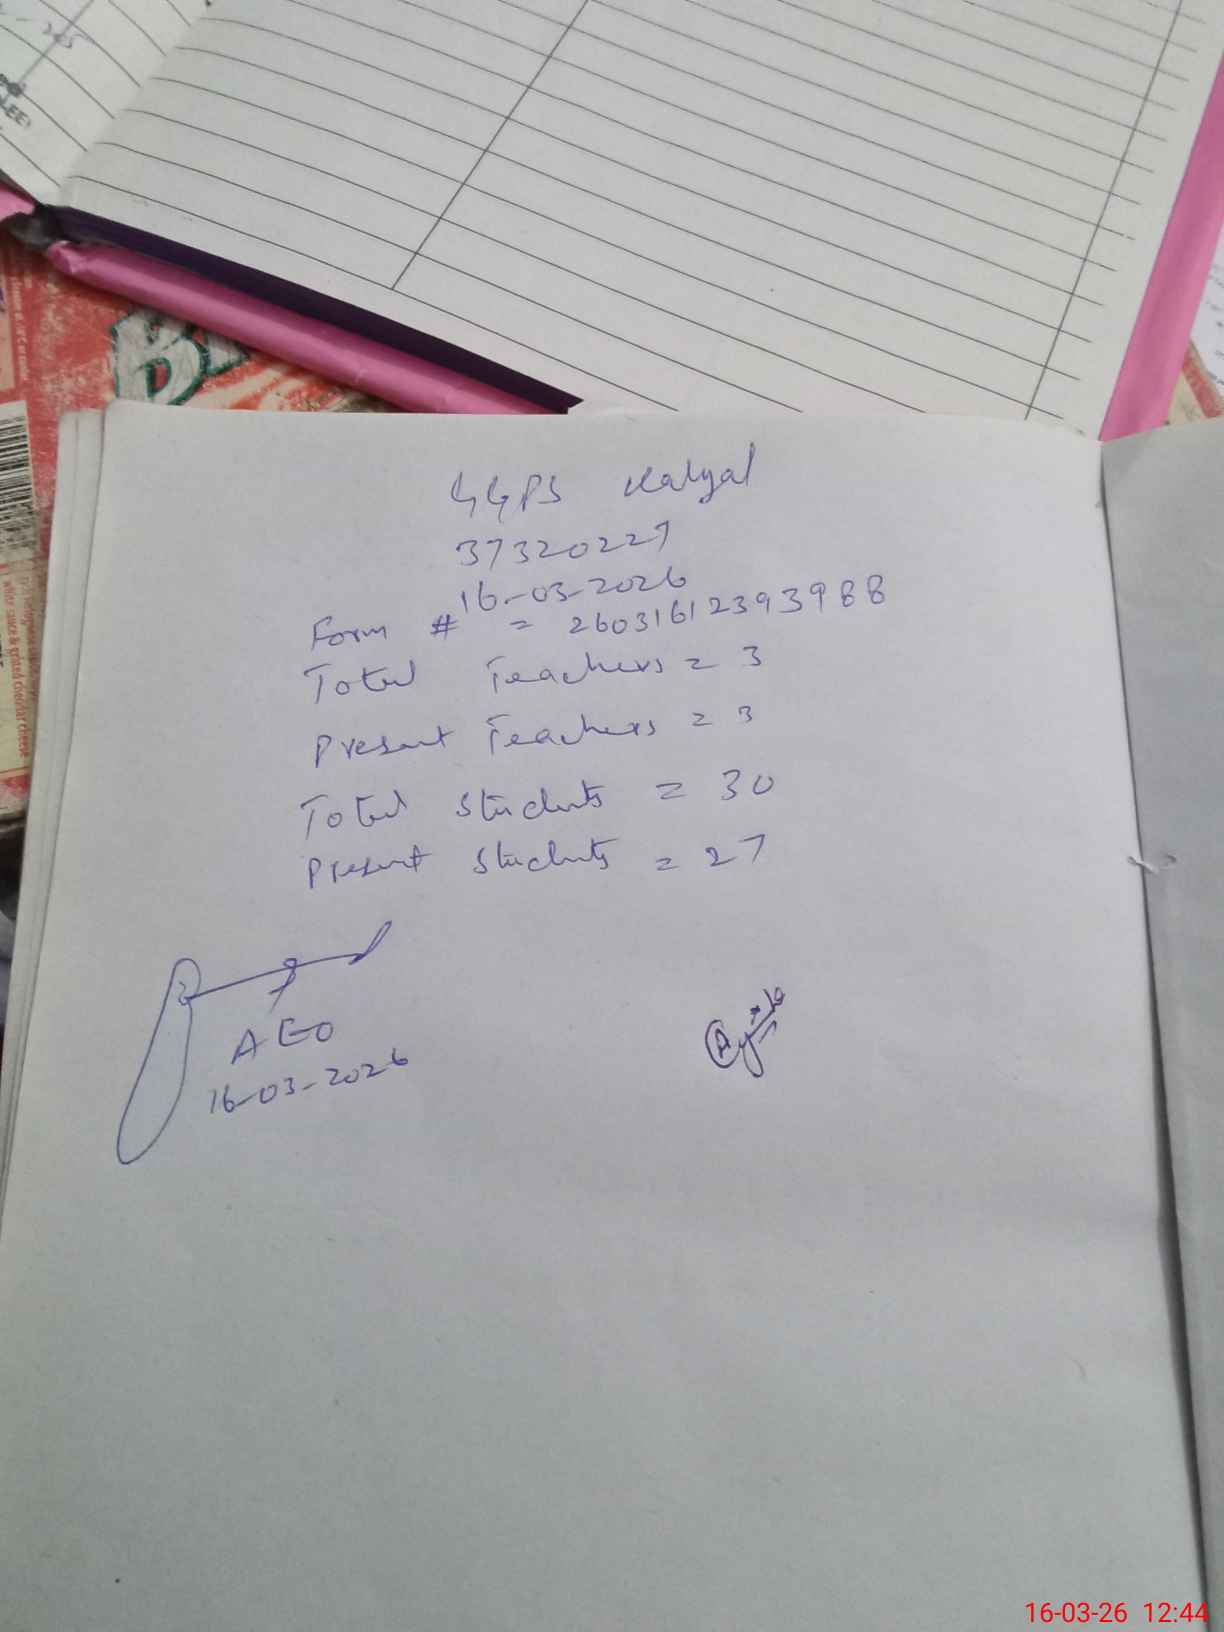 GGPS Kalyal
37320227
16-03-2026
Form # = 26031612393988
Total Teachers = 3
Present Teachers = 3
Total Students = 30
Present Students = 27
AEO
16-03-2026
16-03-26 12:44